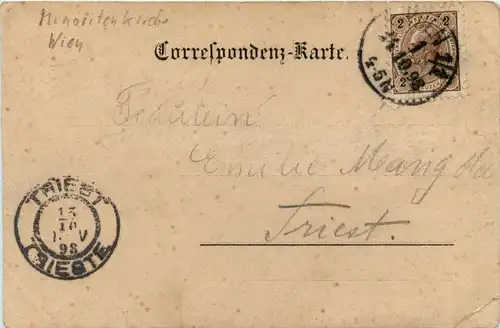 Minoritenkirche
Wien
Correspondenz-Karte.
2
2
Fräulein
Emilie
Triest.
TRIEST
15
10
98
TRIESTE